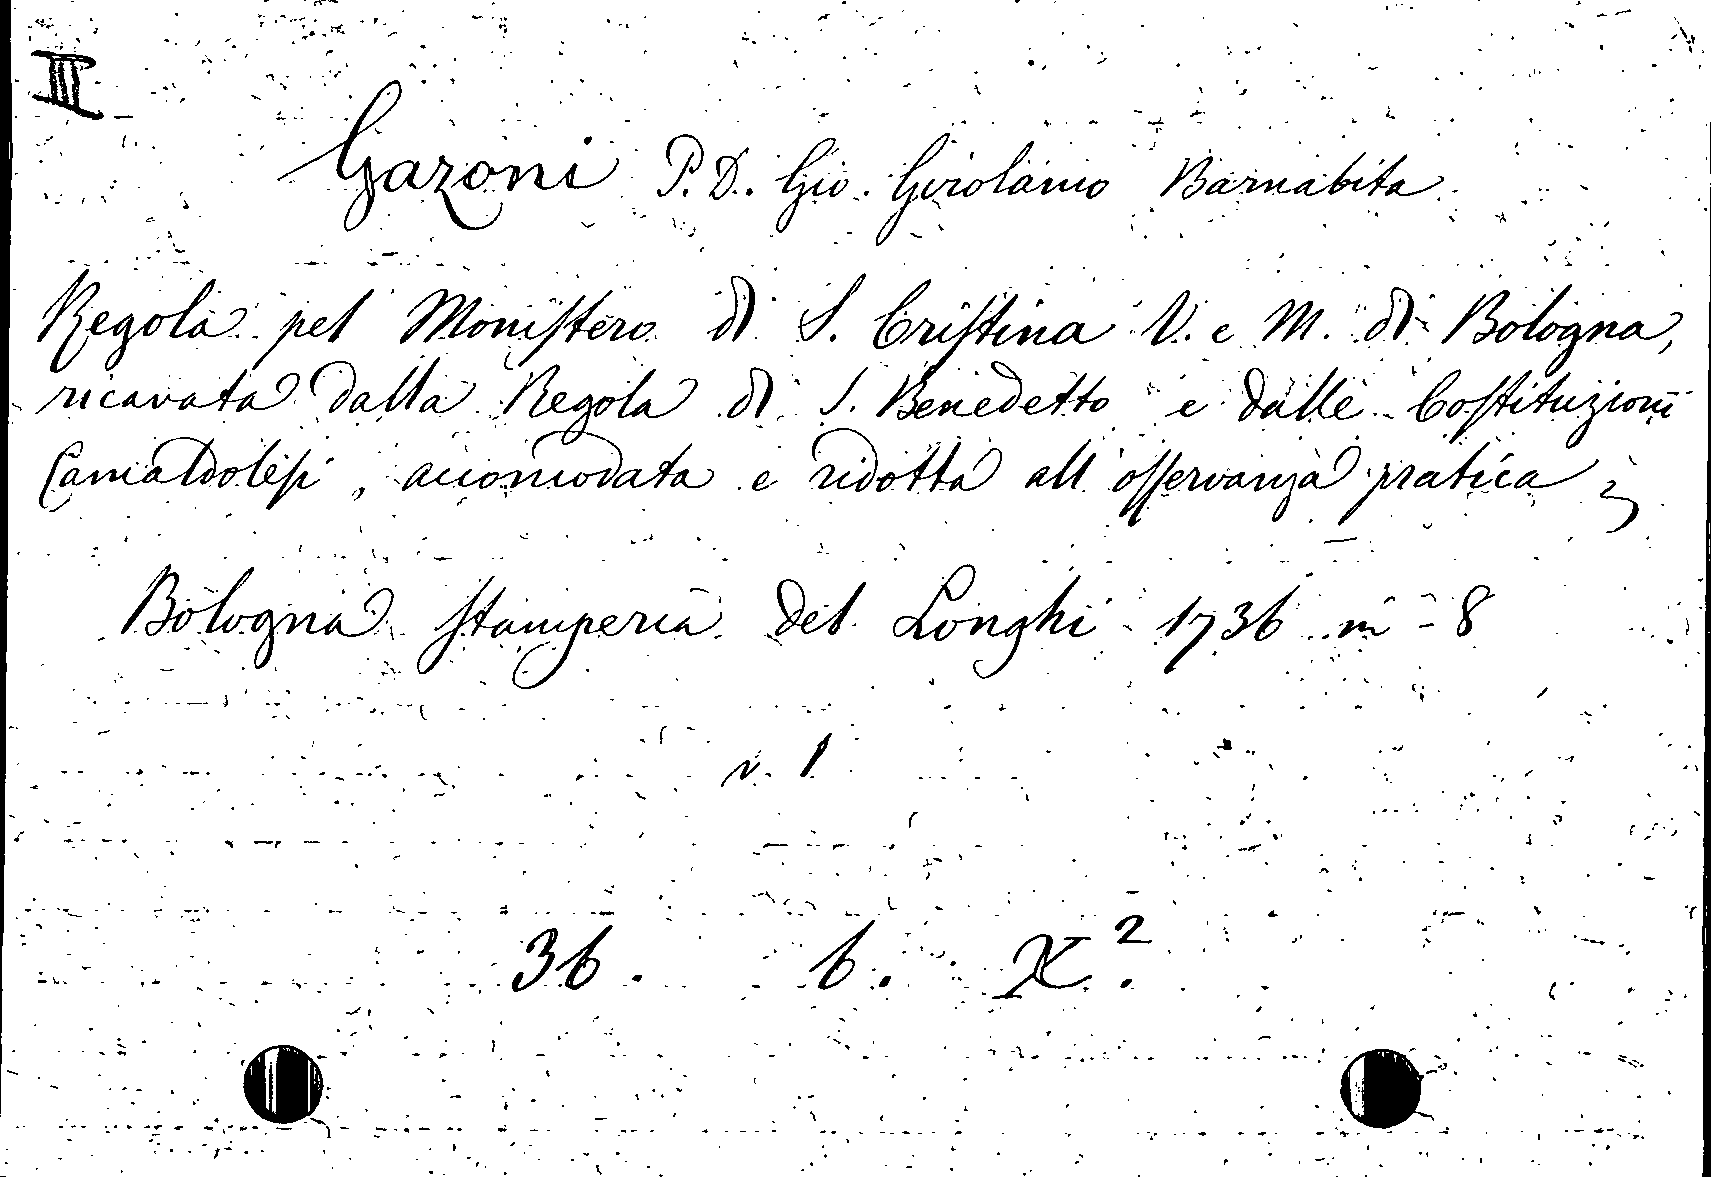 III
Gazoni P. D. Gio. Girolamo Barnabita.
Regola pel Moniſtero di S. Criſtina V. e M. di Bologna,
ricavata dalla Regola di S. Benedetto e dalle Coſtituzioni
Camaldoleſi, accomodata e ridotta all'oſſervanza pratica
Bologna Stamperia del Longhi 1736 in-8
v. 1
36. b. X².